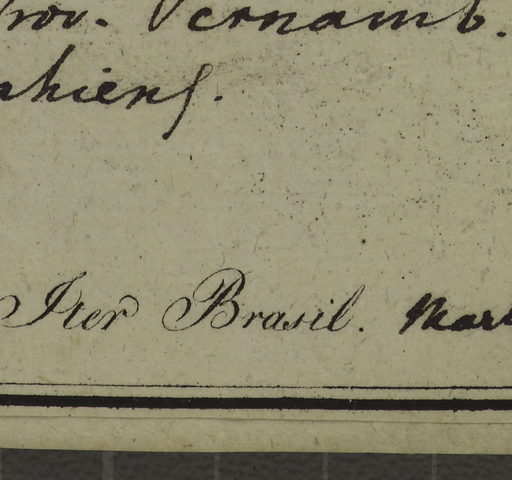 Prov. Pernamb.
ahiens.
Iter Brasil. Mart